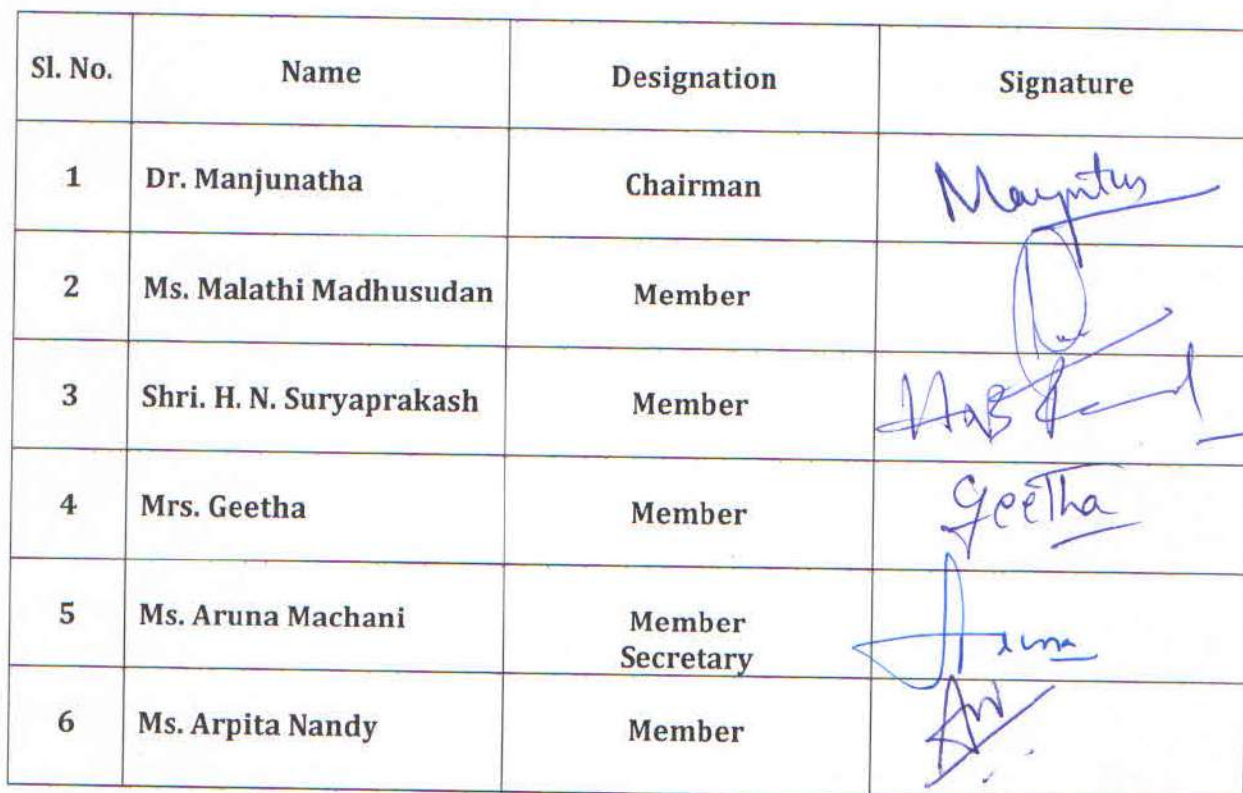 Sl. No. Name Designation Signature
1 Dr. Manjunatha Chairman
2 Ms. Malathi Madhusudan Member
3 Shri. H. N. Suryaprakash Member
4 Mrs. Geetha Member Geetha
5 Ms. Aruna Machani Member
Secretary
6 Ms. Arpita Nandy Member